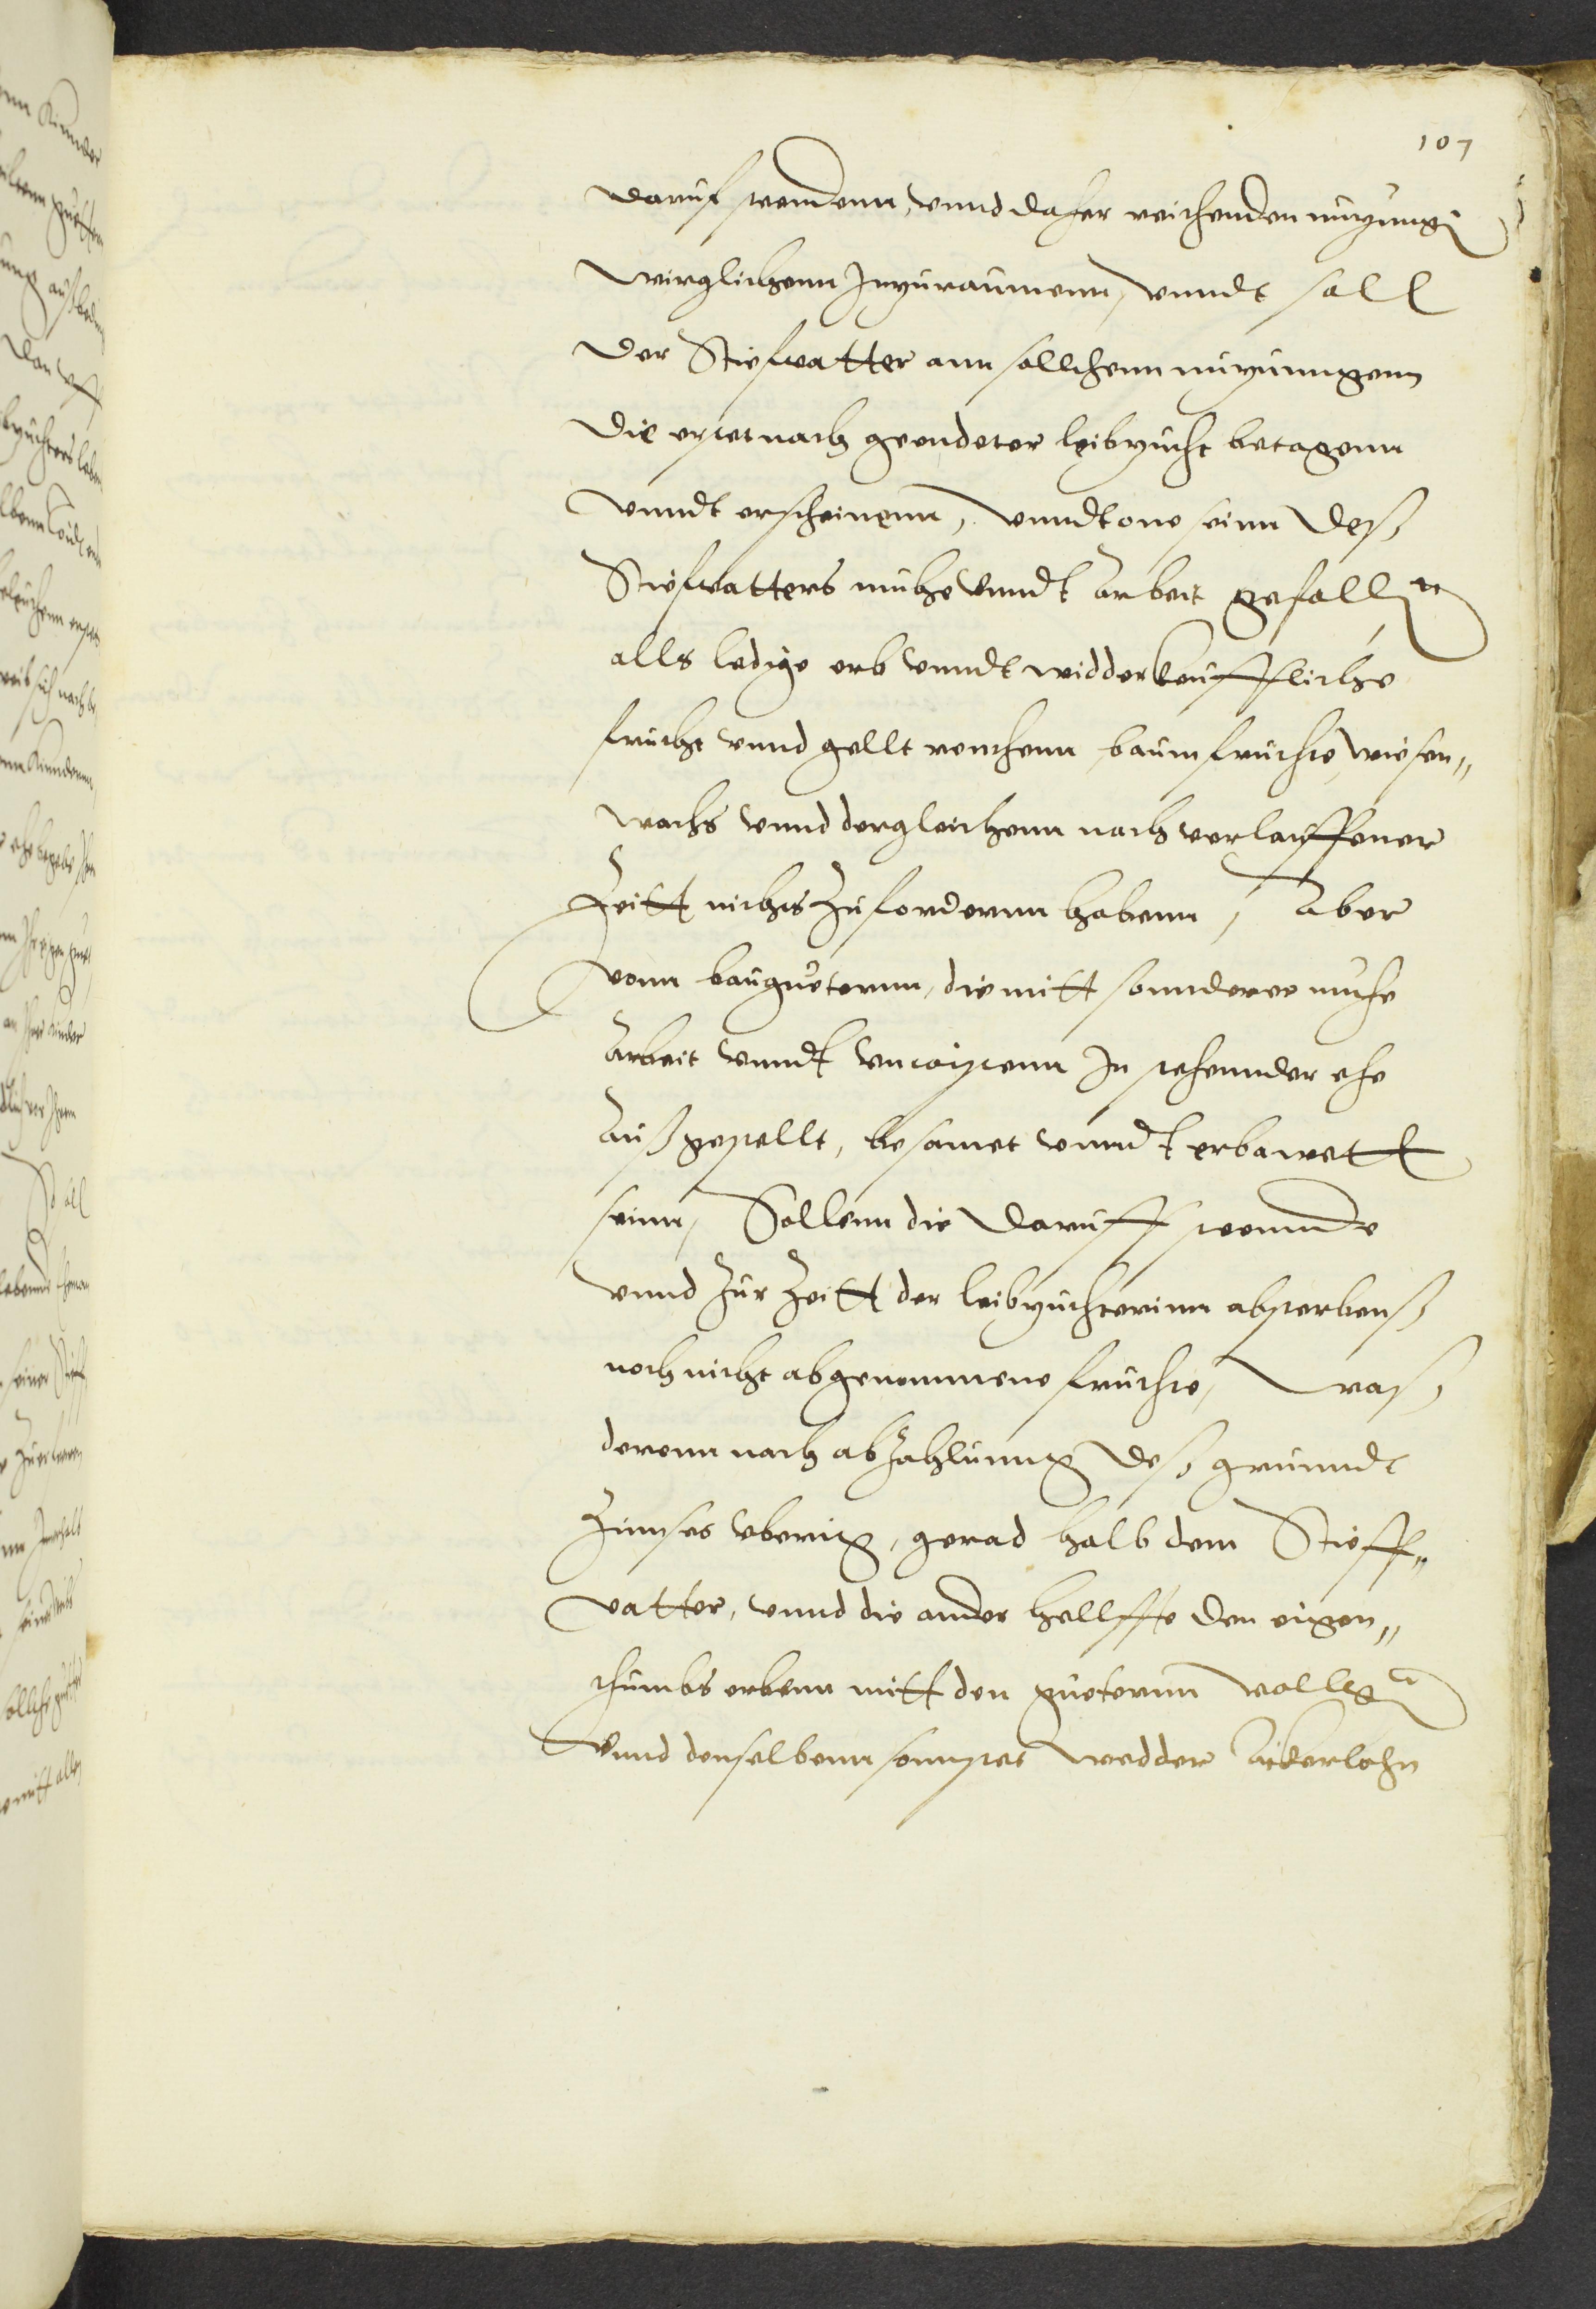 107
daruf stendenn, vnnd daher reichenden nutzung
wirglichenn Inzuraumenn, vnndt sall
der Stiefvatter ann sollchenn nutzungenn
die erstet nach geendeter leibzucht betagenn
vnndt erscheinenn, vnndt one seinn deß
Stiefvatters muhe vnndt Arbeit gefall
alls ledige erb vnndt widderkeuffliche
frucht vnnd gellt renthenn, baumfruchte, wiesen„
wachs vnnd dergleichenn nach verlauffener
Zeitt nichts zufordernn habenn, Aber
vonn baugueternn, die mitt sonnderer muhe
Arbeit vnndt vncostenn In stehennder ehe
Außgestellt, besamet vnndt erbawett
seinn, Sollenn die daruff stennde
vnnd zur Zeitt der leibzuchterinn absterbenß
noch nicht abgenommene fruchte, waß
derenn nach abzahlunng deß grunndt
Zinses vberig, gerad halb dem Stieff„
vatter, vnnd die ander hellffte den eigen„
thumbs erbenn mitt den guetternn vollg
Vnnd denselbenn sonnstet wedder Ackerlohn